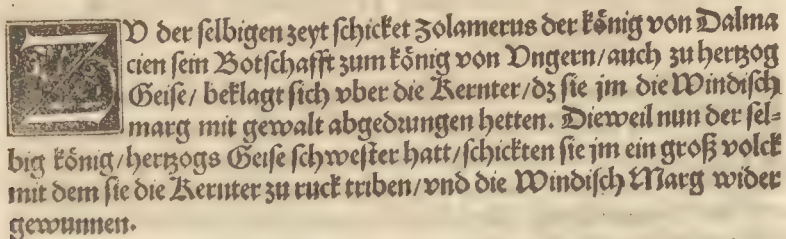 ZV der selbigen zeyt schicket Zolamerus der kǒnig von Dalma
cien sein Botschafft zum kǒnig von Vngern/auch zu hertzog
Geise/ beklagt sich vber die Kernter/dz sie jm die Windisch
marg mit gewalt abgedrungen hetten. Dieweil nun der sel=
big kǒnig/hertzogs Geise schwester hatt/schickten sie jm ein groß volck
mit dem sie die Kernter zu ruck triben/vnd die Windisch Marg wider
gewunnen.